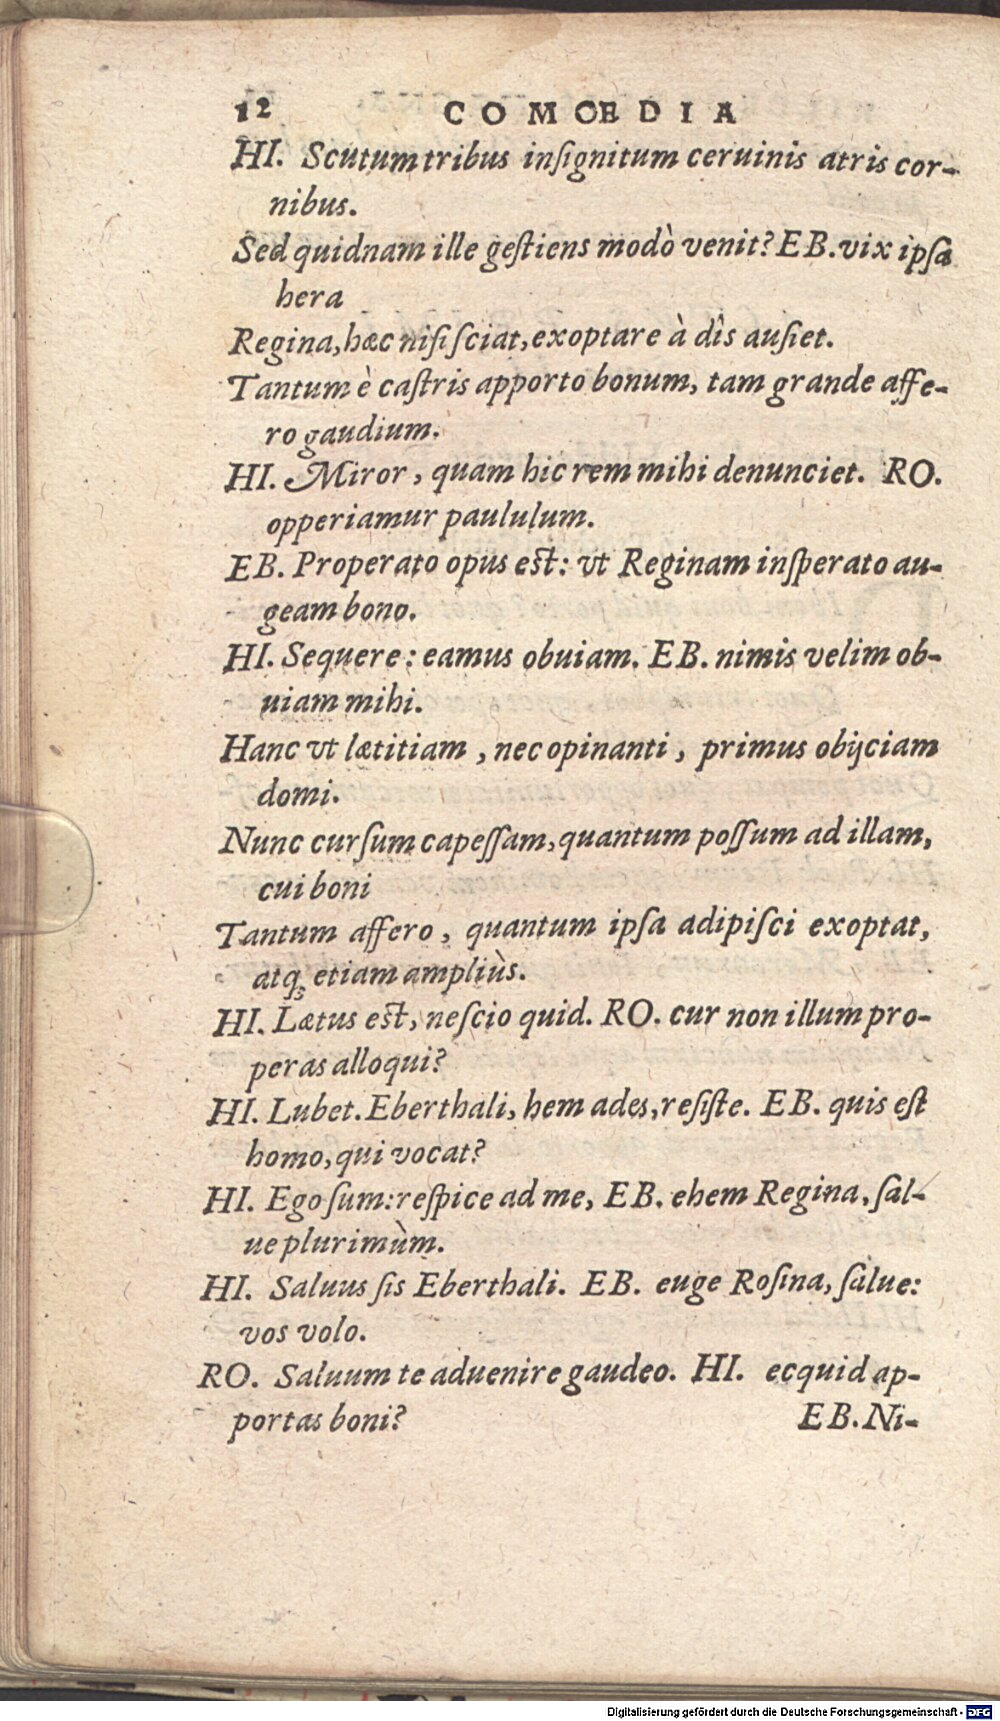 12 COMOEDIA
HI. Scutum tribus inſignitum ceruinis atris cor-
nibus.
Sed quidnam ille geſtiens modò venit? EB. vix ipſa
hera
Regina, hæc niſi ſciat, exoptare à dîs auſiet.
Tantum è caſtris apporto bonum, tam grande affe-
ro gaudium.
HI. Miror, quam hic rem mihi denunciet. RO.
opperiamur paululum.
EB. Properato opus est: vt Reginam inſperato au-
geam bono.
HI. Sequere: eamus obuiam. EB. nimis velim ob-
uiam mihi.
Hanc vt lætitiam, nec opinanti, primus obijciam
domi.
Nunc curſum capeſſam, quantum poſſum ad illam,
cui boni
Tantum affero, quantum ipſa adipiſci exoptat,
atq; etiam ampliùs.
HI. Lætus est, neſcio quid. RO. cur non illum pro-
peras alloqui?
HI. Lubet. Eberthali, hem ades, reſiſte. EB. quis eſt
homo, qui vocat?
HI. Ego ſum: reſpice ad me, EB. ehem Regina, ſal-
ue plurimùm.
HI. Saluus ſis Eberthali. EB. euge Roſina, ſalue:
vos volo.
RO. Saluum te aduenire gaudeo. HI. ecquid ap-
portas boni? EB. Ni-
Digitalisierung gefördert durch die Deutsche Forschungsgemeinschaft - DFG